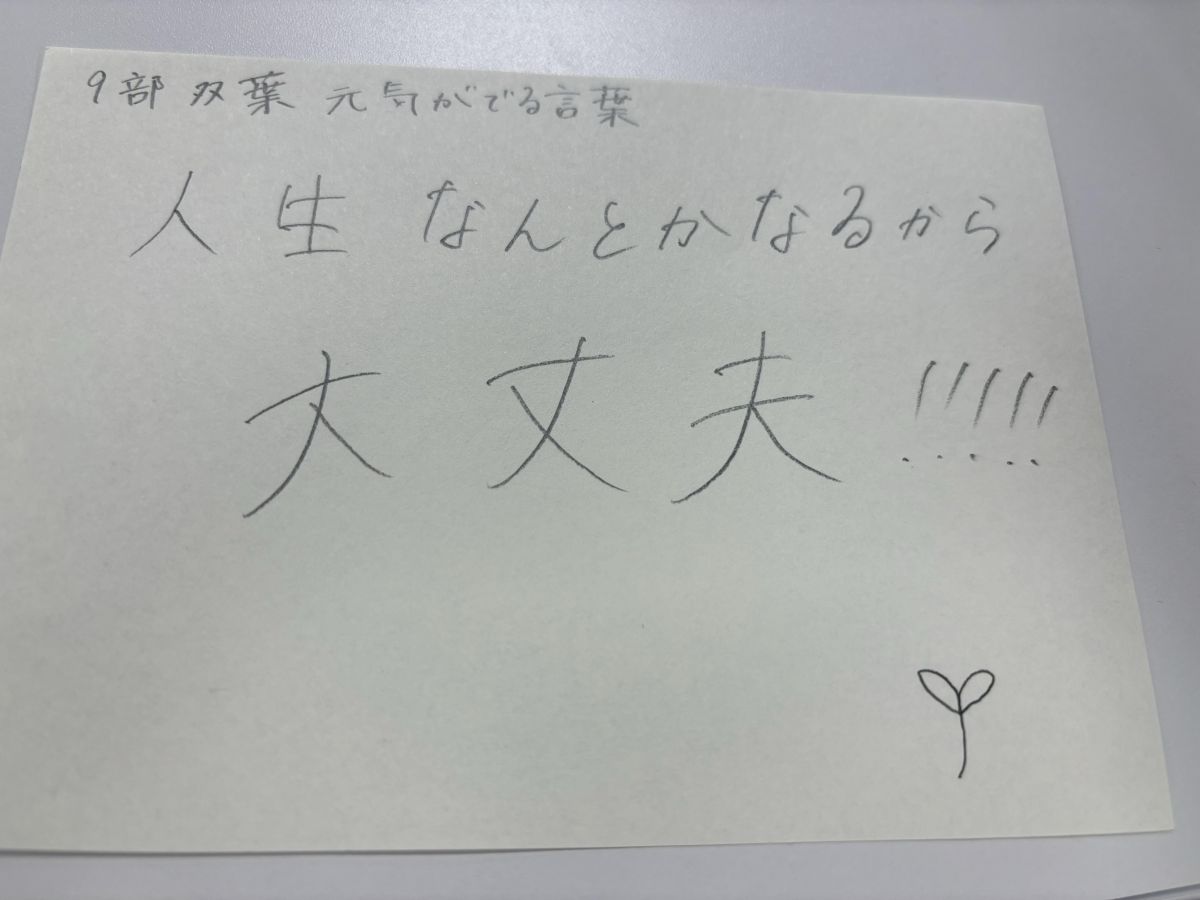 9部 双葉 元気がでる言葉
人生 なんとかなるから
大丈夫 !!!!!